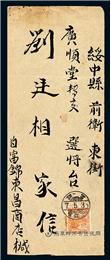 綏中縣 前衛 東街
廣順堂 選將台
劉廷相家信
自富錦東昌商店緘